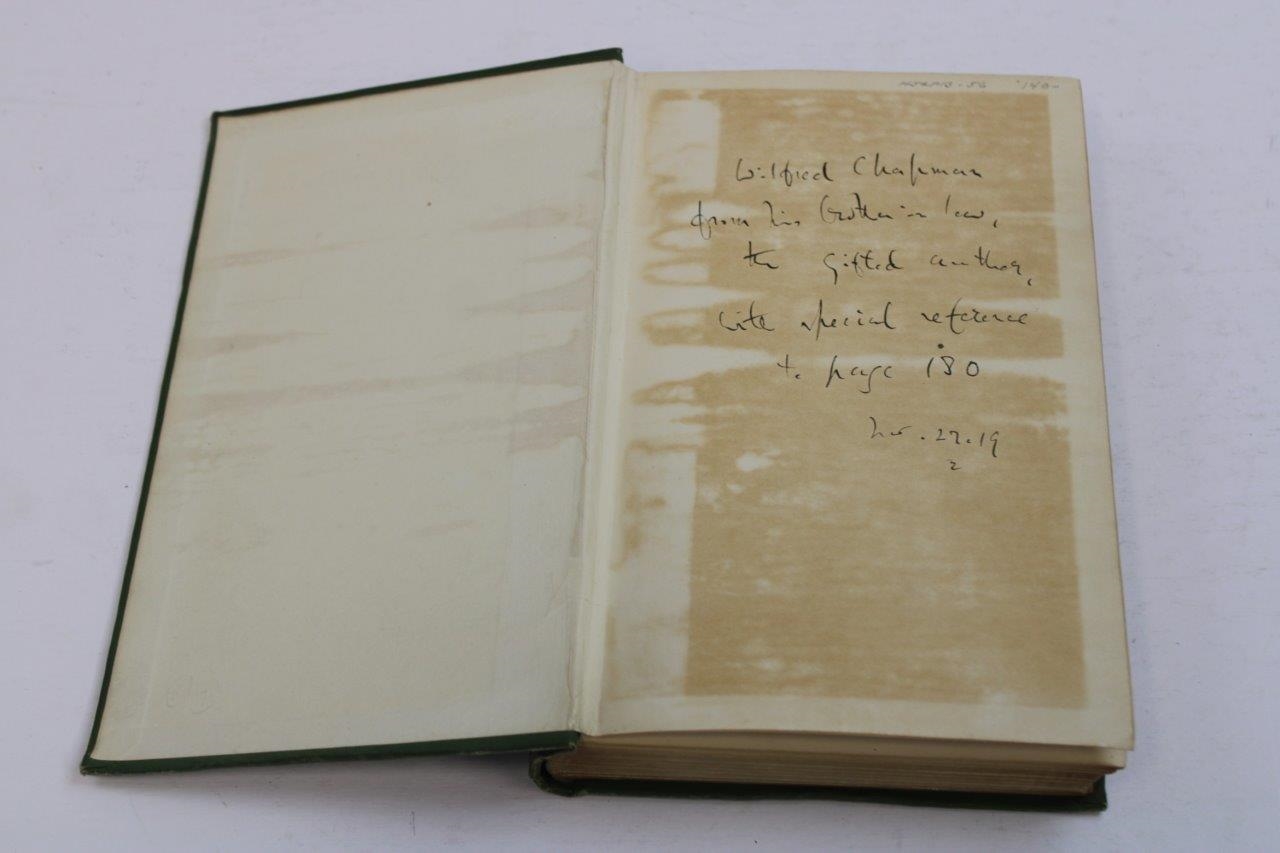 Wilfred Chapman
from his brother in law,
the gifted author,
with special reference
to page 180
27.19
2